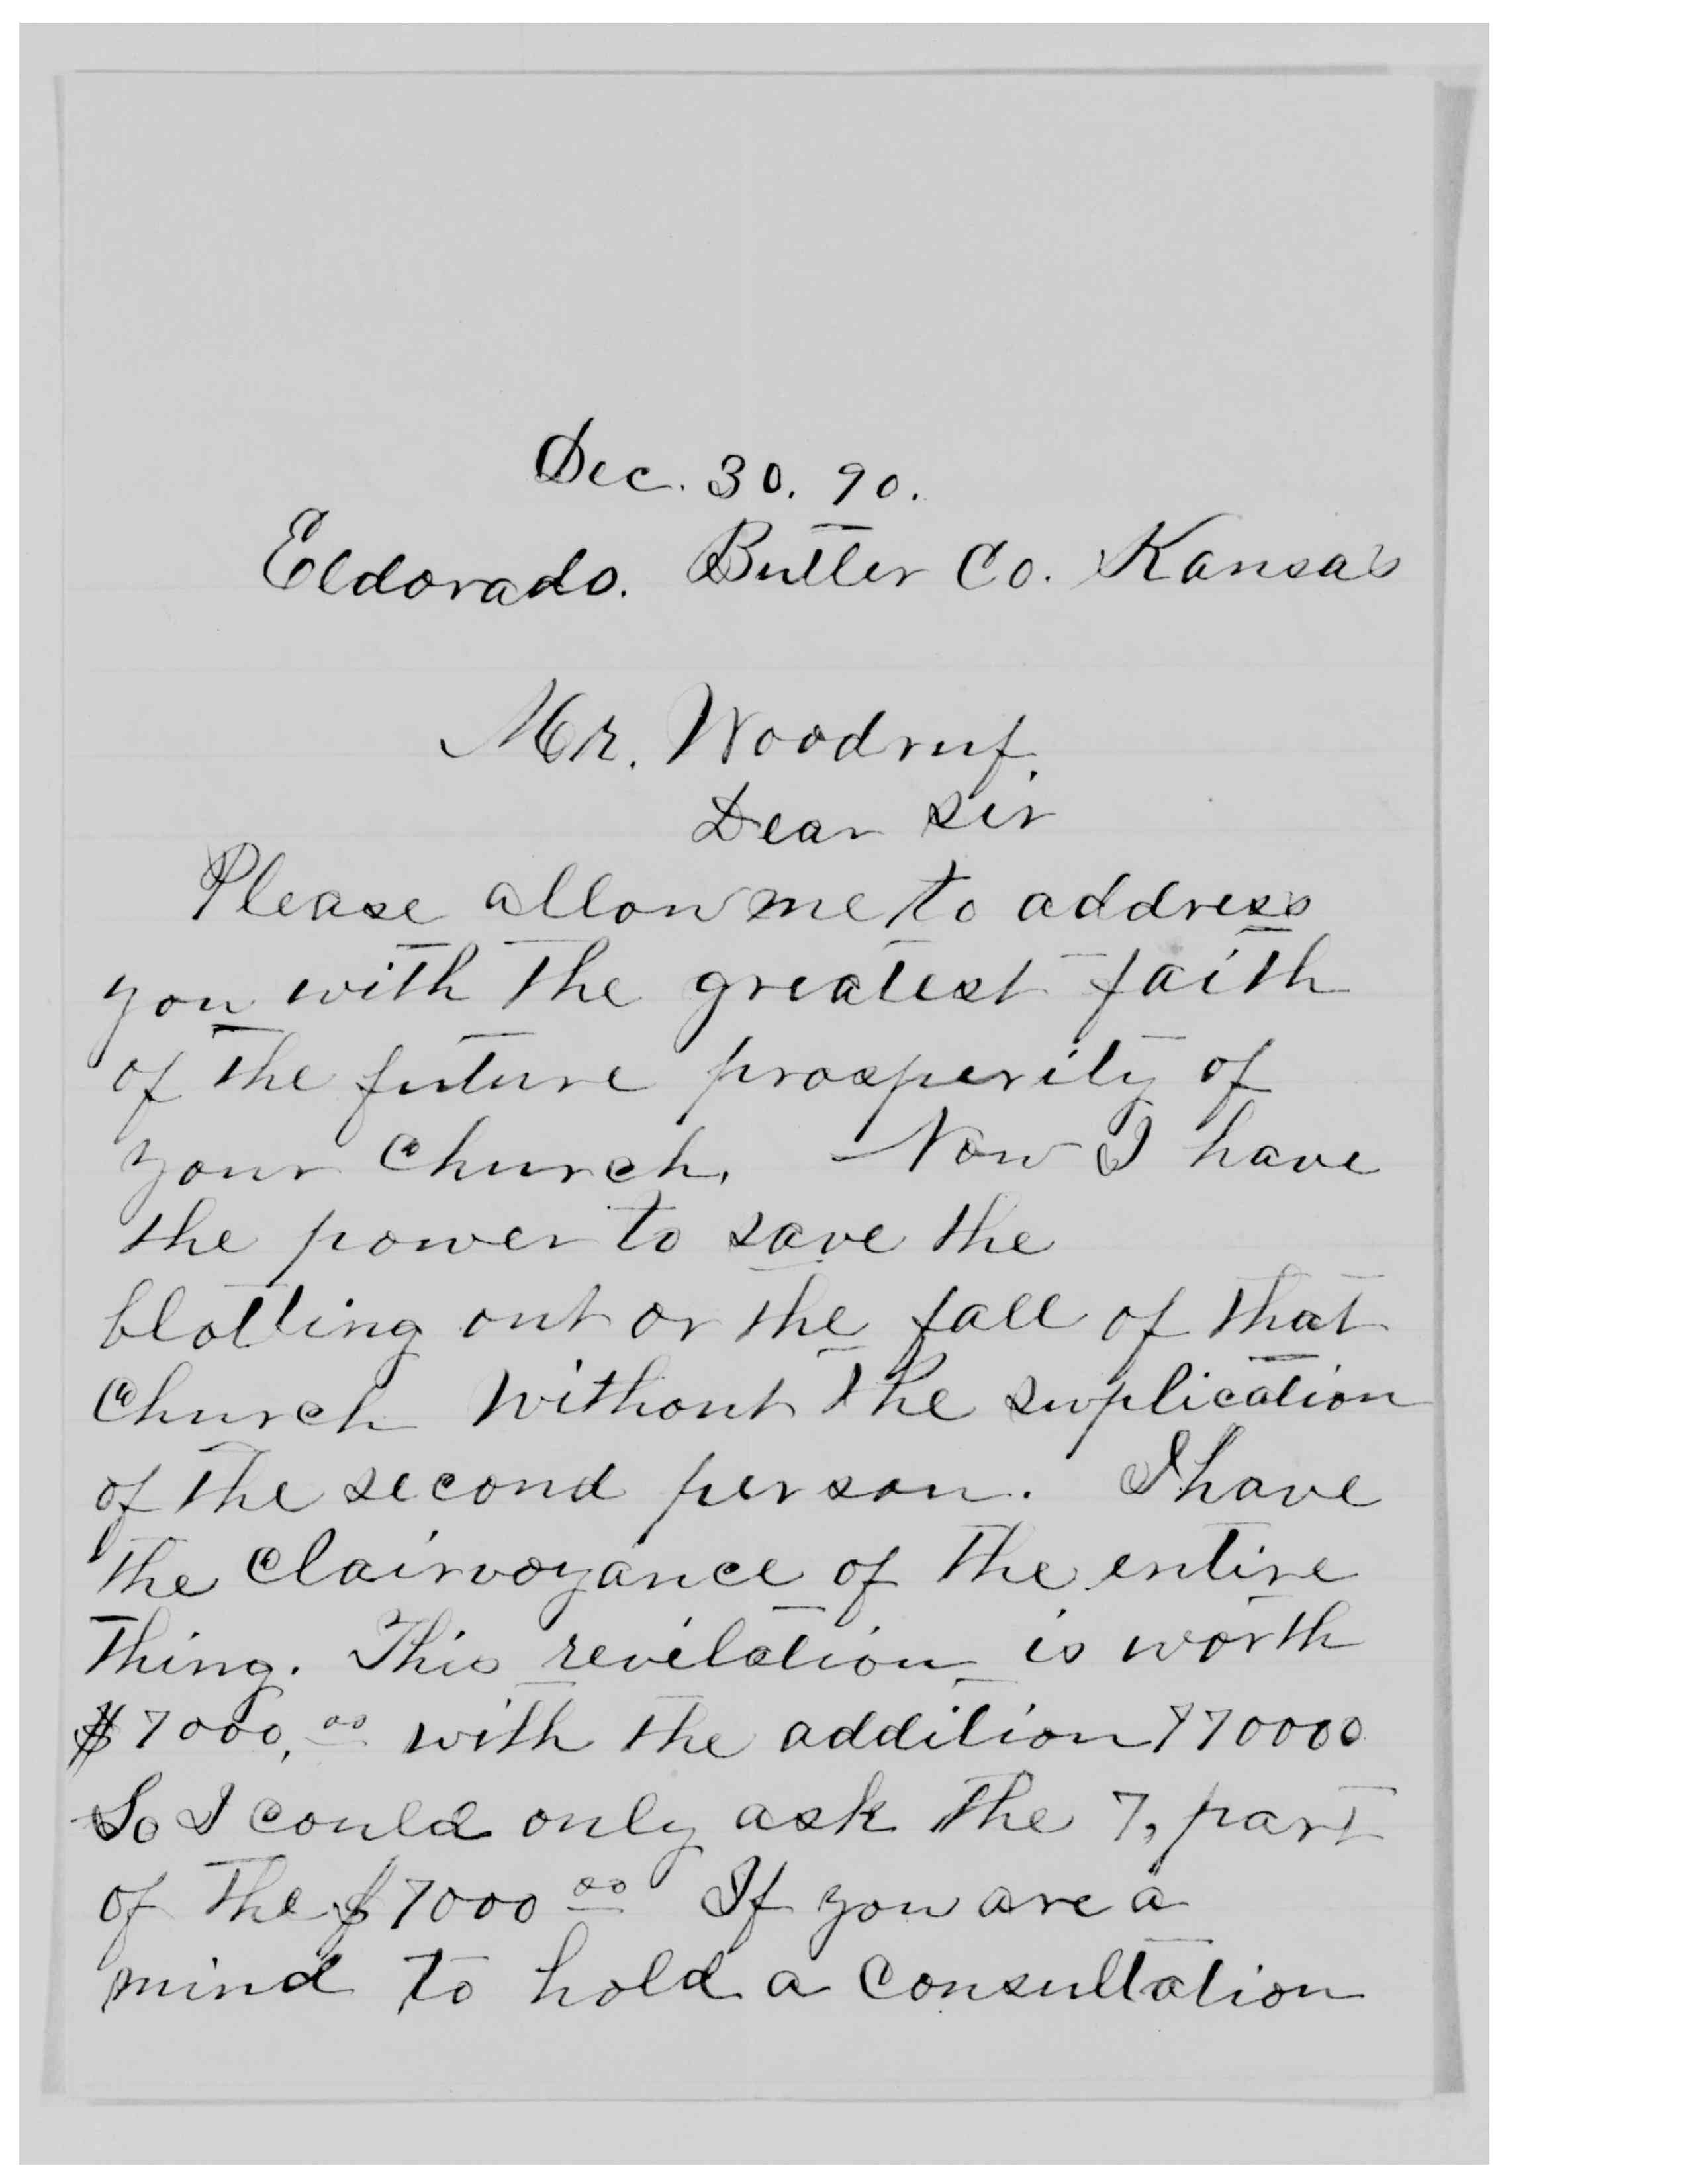 Dec. 30. 90.
Eldorado. Butler Co. Kansas
Mr. Woodruf.
Dear sir
Please allow me to address
you with the greatest faith
of the future prosperity of
your Church. Now I have
the power to save the
blotting out or the fall of that
Church without the suplication
of the second person. I have
the Clairvoyance of the entire
thing. This revilation is worth
$7000,00 with the addition $70000
So I could only ask the 7, part
of the $7000 00 If you are a
mind to hold a Consultation